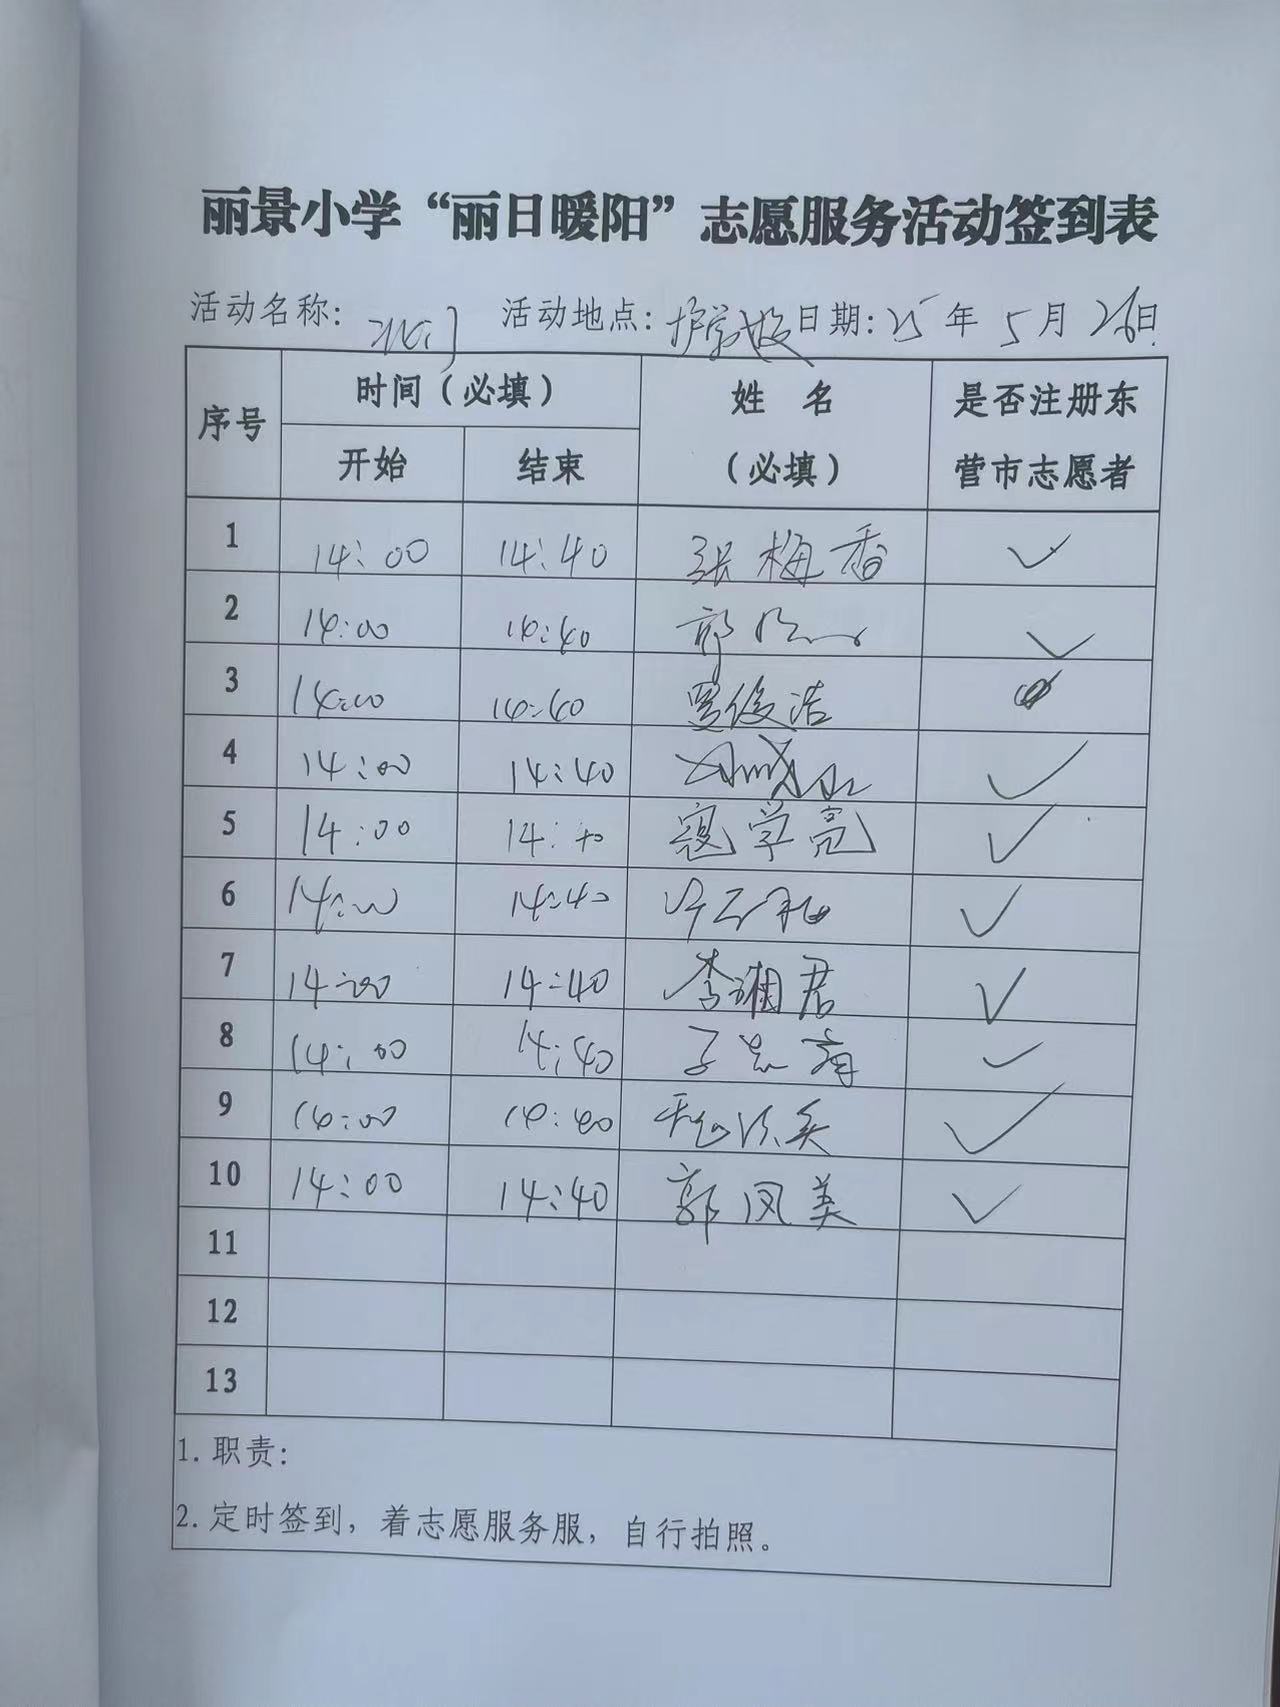 丽景小学“丽日暖阳”志愿服务活动签到表
活动名称： 北门 活动地点：护学岗 日期：25年5月26日
序号 时间（必填） 姓名（必填） 是否注册东营市志愿者
开始 结束
1 14:00 14:40 张梅香 ✓
2 14:00 14:40 郭 ✓
3 14:00 14:40 俊浩
4 14:00 14:40 ✓
5 14:00 14:40 寇学亮 ✓
6 14:00 14:40 ✓
7 14:00 14:40 李湘君 ✓
8 14:00 14:40 ✓
9 14:00 14:40 ✓
10 14:00 14:40 郭凤美 ✓
11
12
13
1. 职责：
2. 定时签到，着志愿服务服，自行拍照。